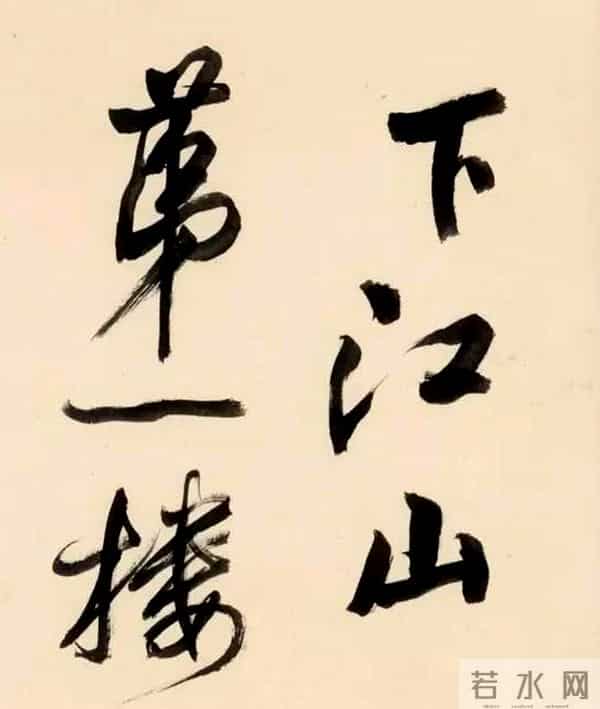 下江山
第一楼
若水网